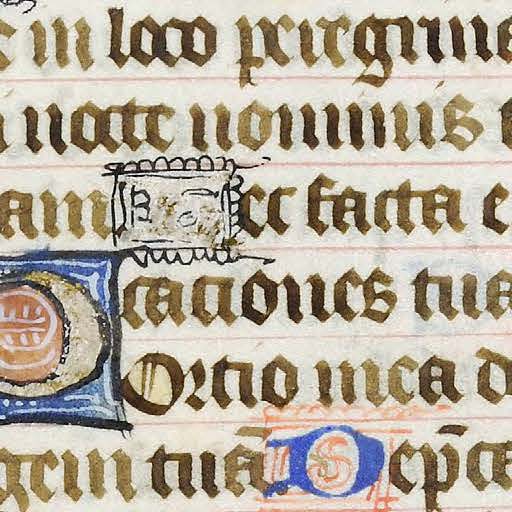 in loco peregrine
nocte nominis
am Hec facta e
cationes tua
Portio mea d
gem tuā. Dep̄ca